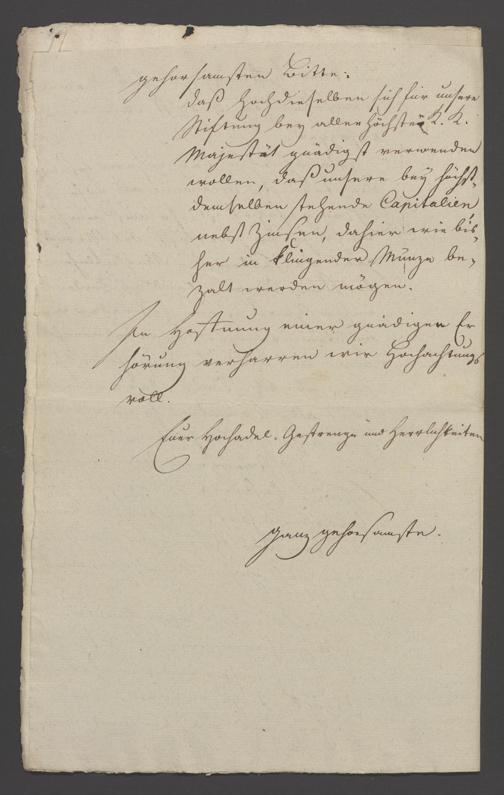 gehorsamsten Bitte:
daß Hochdieselben sich für unsere
Stiftung bey allerhöchster K. K.
Majestät gnädigst verwenden
wollen, daß unsere bey höchst-
demselben stehende Capitalien
nebst Zinsen, dahier wie bis-
her in klingender Münze be-
zalt werden mögen.
In Hoffnung einer gnädigen Er-
hörung verharren wir Hochachtungs
voll.
Euer Hochadel. Gestrenge und Herrlichkeiten
ganz gehorsamste.